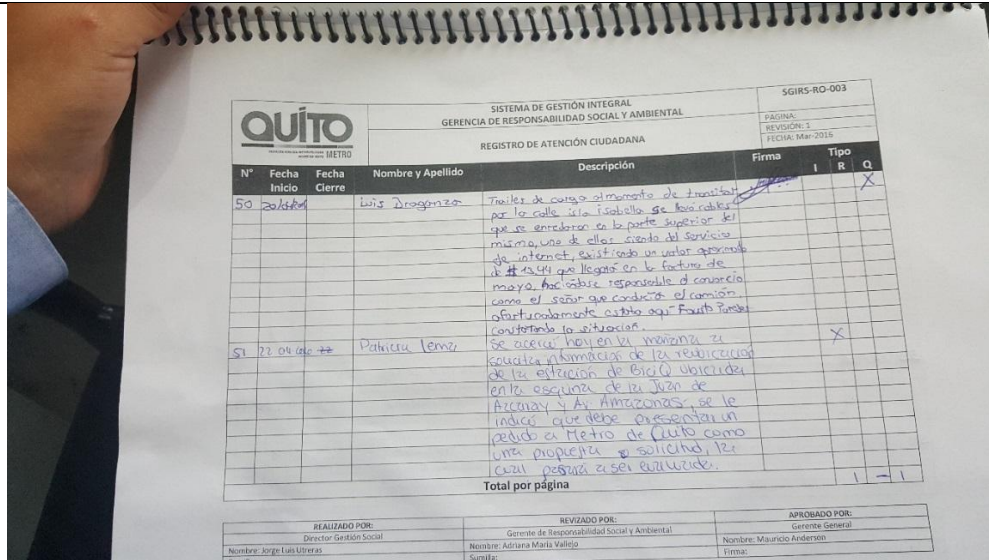 SISTEMA DE GESTIÓN INTEGRAL
GERENCIA DE RESPONSABILIDAD SOCIAL Y AMBIENTAL
REGISTRO DE ATENCIÓN CIUDADANA
SGIRS-RO-003
PAGINA:
REVISIÓN: 1
FECHA: Mar-2016
QUÍTO
METRO
N° Fecha Inicio Fecha Cierre Nombre y Apellido Descripción Firma Tipo I R Q
50 Luis Draganza Trailer de carga al momento de transitar X
por la calle isla isabella se llevó cables
que se enredaron en la parte superior del
mismo, uno de ellos siendo del servicio
de internet, existiendo un valor aproximado
de $ 13,44 que llegará en la factura de
mayo, haciéndose responsable el consorcio
como el señor que conducía el camión
afortunadamente estaba aquí Fausto Paredes
constatando la situación.
51 22 04 Patricia Lema Se acercó hoy en la mañana a X
solicitar información de la reubicación
de la estación de BiciQ ubicada
en la esquina de la Juan de
Azcaray y Av Amazonas, se le
indicó que debe presentar un
pedido a Metro de Quito como
una propuesta o solicitud, la
cual pasará a ser evaluada.
Total por página 1 - 1
REALIZADO POR: REVIZADO POR: APROBADO POR:
Director Gestión Social Gerente de Responsabilidad Social y Ambiental Gerente General
Nombre: Jorge Luis Utreras Nombre: Adriana María Vallejo Nombre: Mauricio Anderson
Sumilla: Firma: